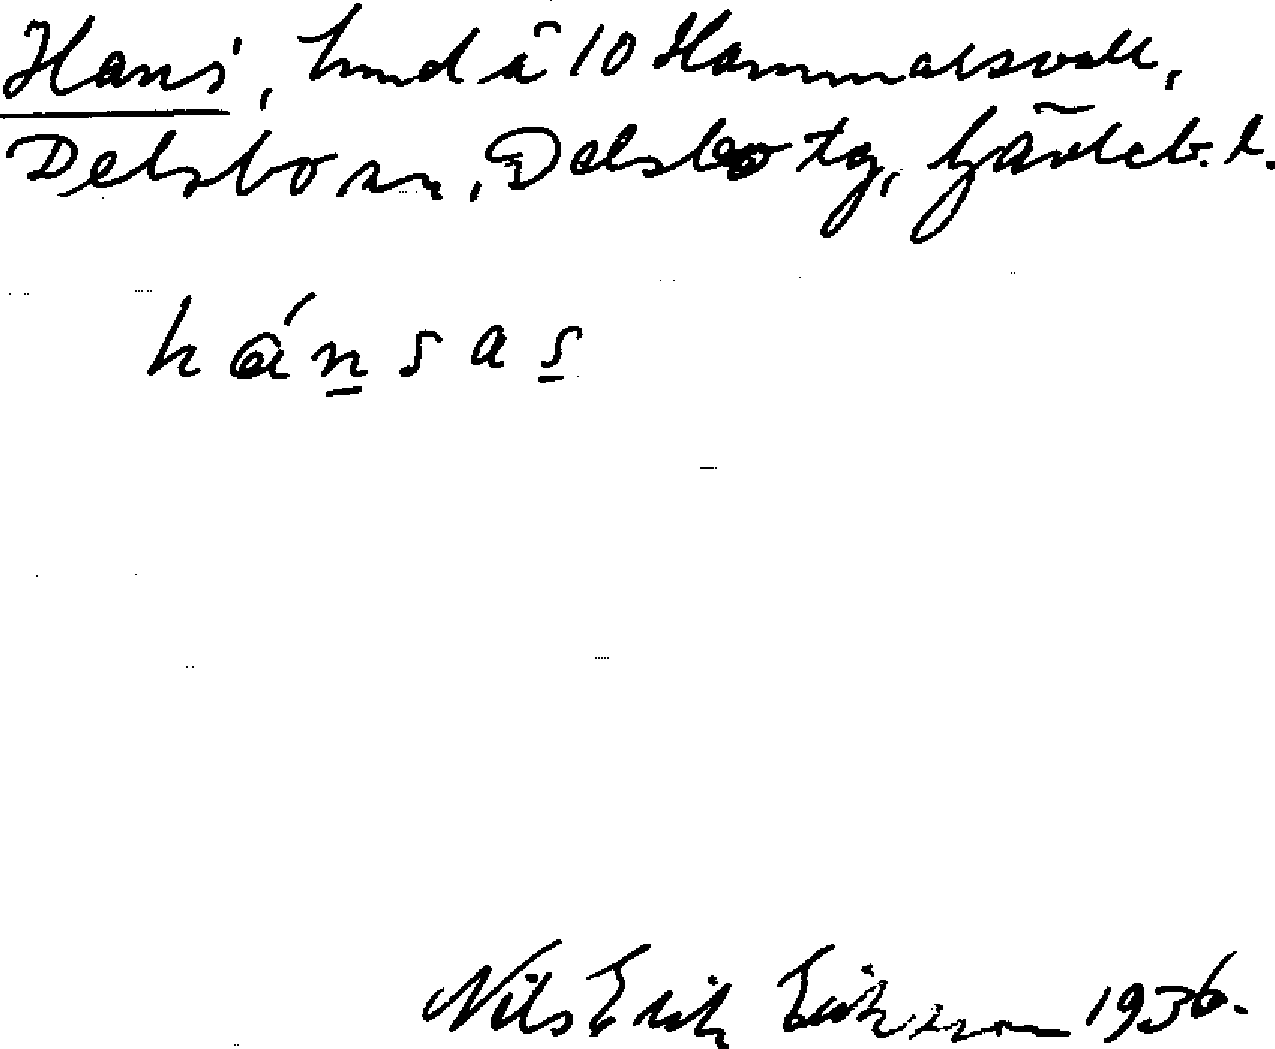 Hans', lund å 10 Hammarsvall,
Delsbo sn, Delsbo tg, Gävleb. l.
hánsas
Nils Erik Eriksson 1936.